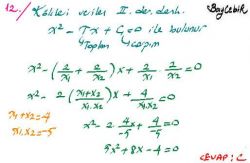 Baycebir
12./ Kökleri verilen II. der. denk.
x² - Tx + Ç = 0 ile bulunur
Toplam çarpım
x² - (2/x₁ + 2/x₂)x + 2/x₁ · 2/x₂ = 0
x² - 2((x₁+x₂)/(x₁.x₂))x + 4/(x₁.x₂) = 0
x₁+x₂ = 4
x₁.x₂ = -5
x² - 2 · 4x/-5 + 4/-5 = 0
5x² + 8x - 4 = 0
CEVAP: C